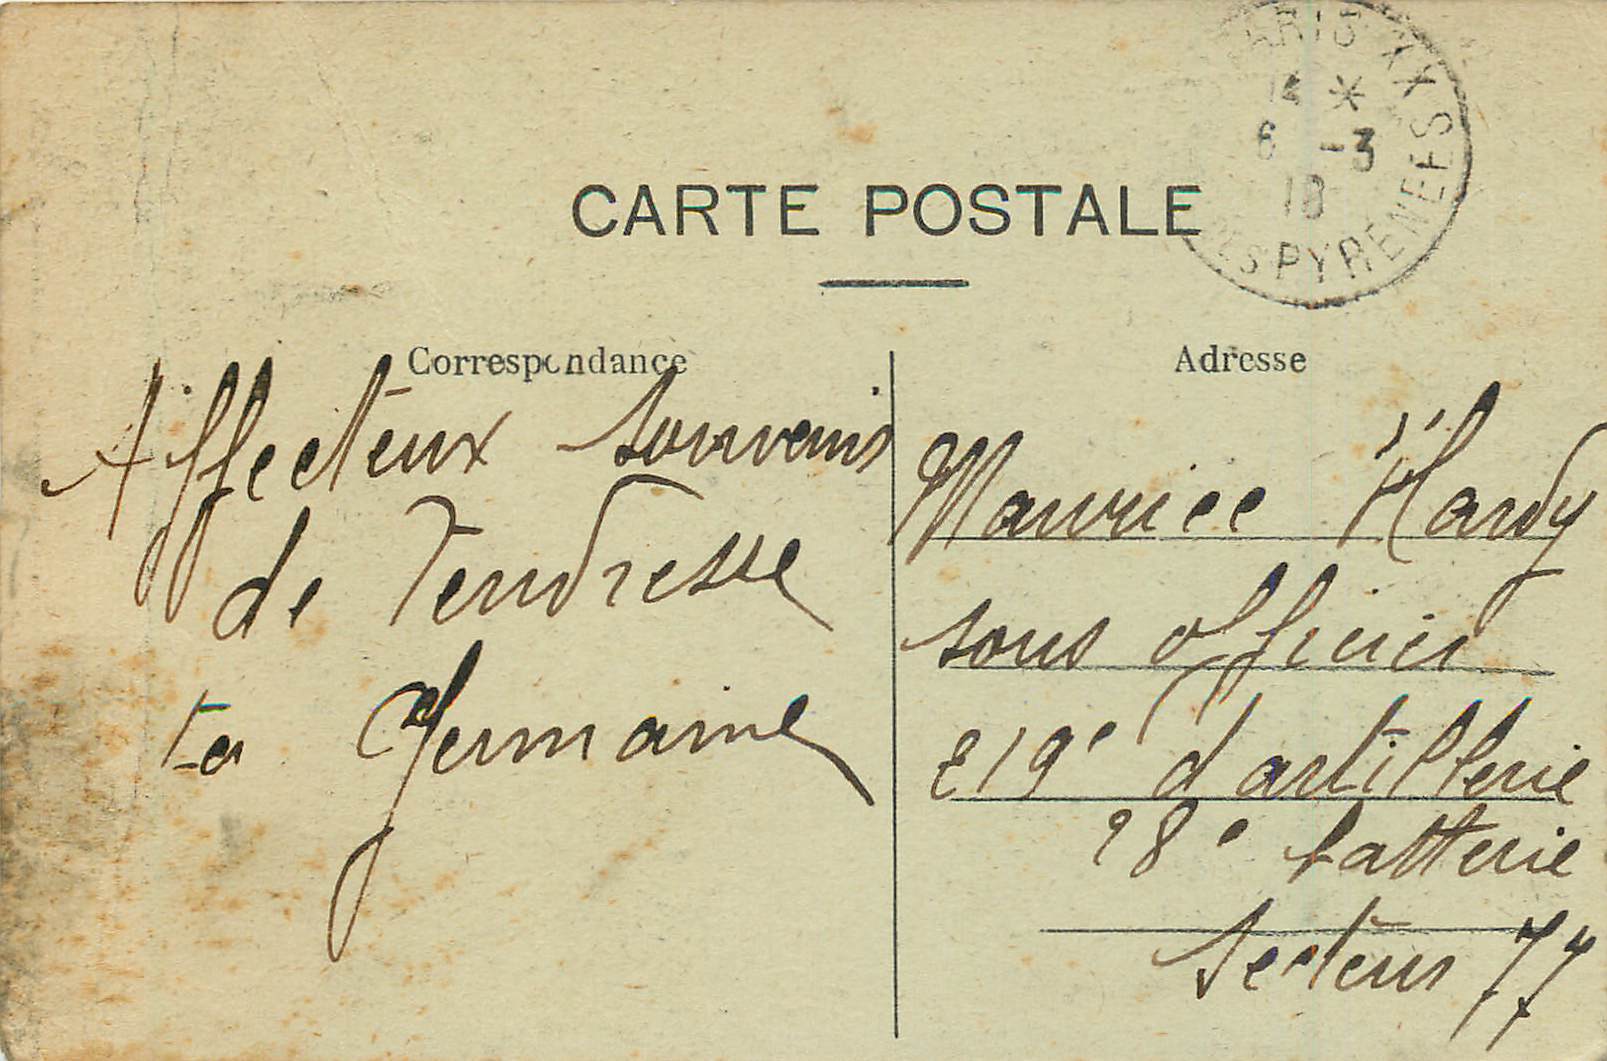 PARIS XX
14 *
6 -3
18
R. DES PYRENEES
CARTE POSTALE
Correspondance
Adresse
Affecteux souvenir
de Tendresse
ta Germaine
Maurice Hardy
sous officier
219e d'artillerie
28e batterie
Secteur 77